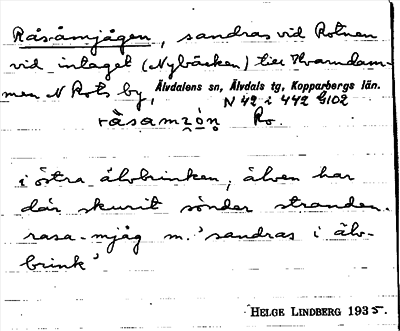 Råsåmjågen, sandras vid Rotnen
vid intaget (Nybäcken) till Kvarndam-
men N Rots by, Älvdalens sn, Älvdals tg, Kopparbergs län.
N 42 i 442 G102
råsamzǫ́n̥ Ro.
i östra älvbrinken, älven har
där skurit sönder stranden.
rasa-mjåg m. 'sandras i älv-
brink'
HELGE LINDBERG 1935.